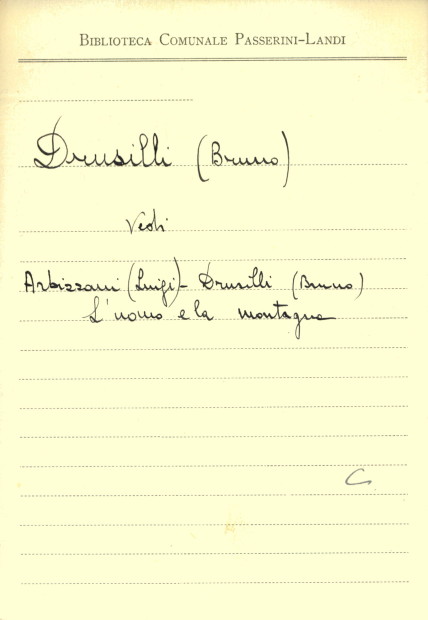 BIBLIOTECA COMUNALE PASSERINI-LANDI
Drusilli (Bruno)
Vedi
Arbizzani (Luigi)- Drusilli (Bruno)
L'uomo e la montagna
C